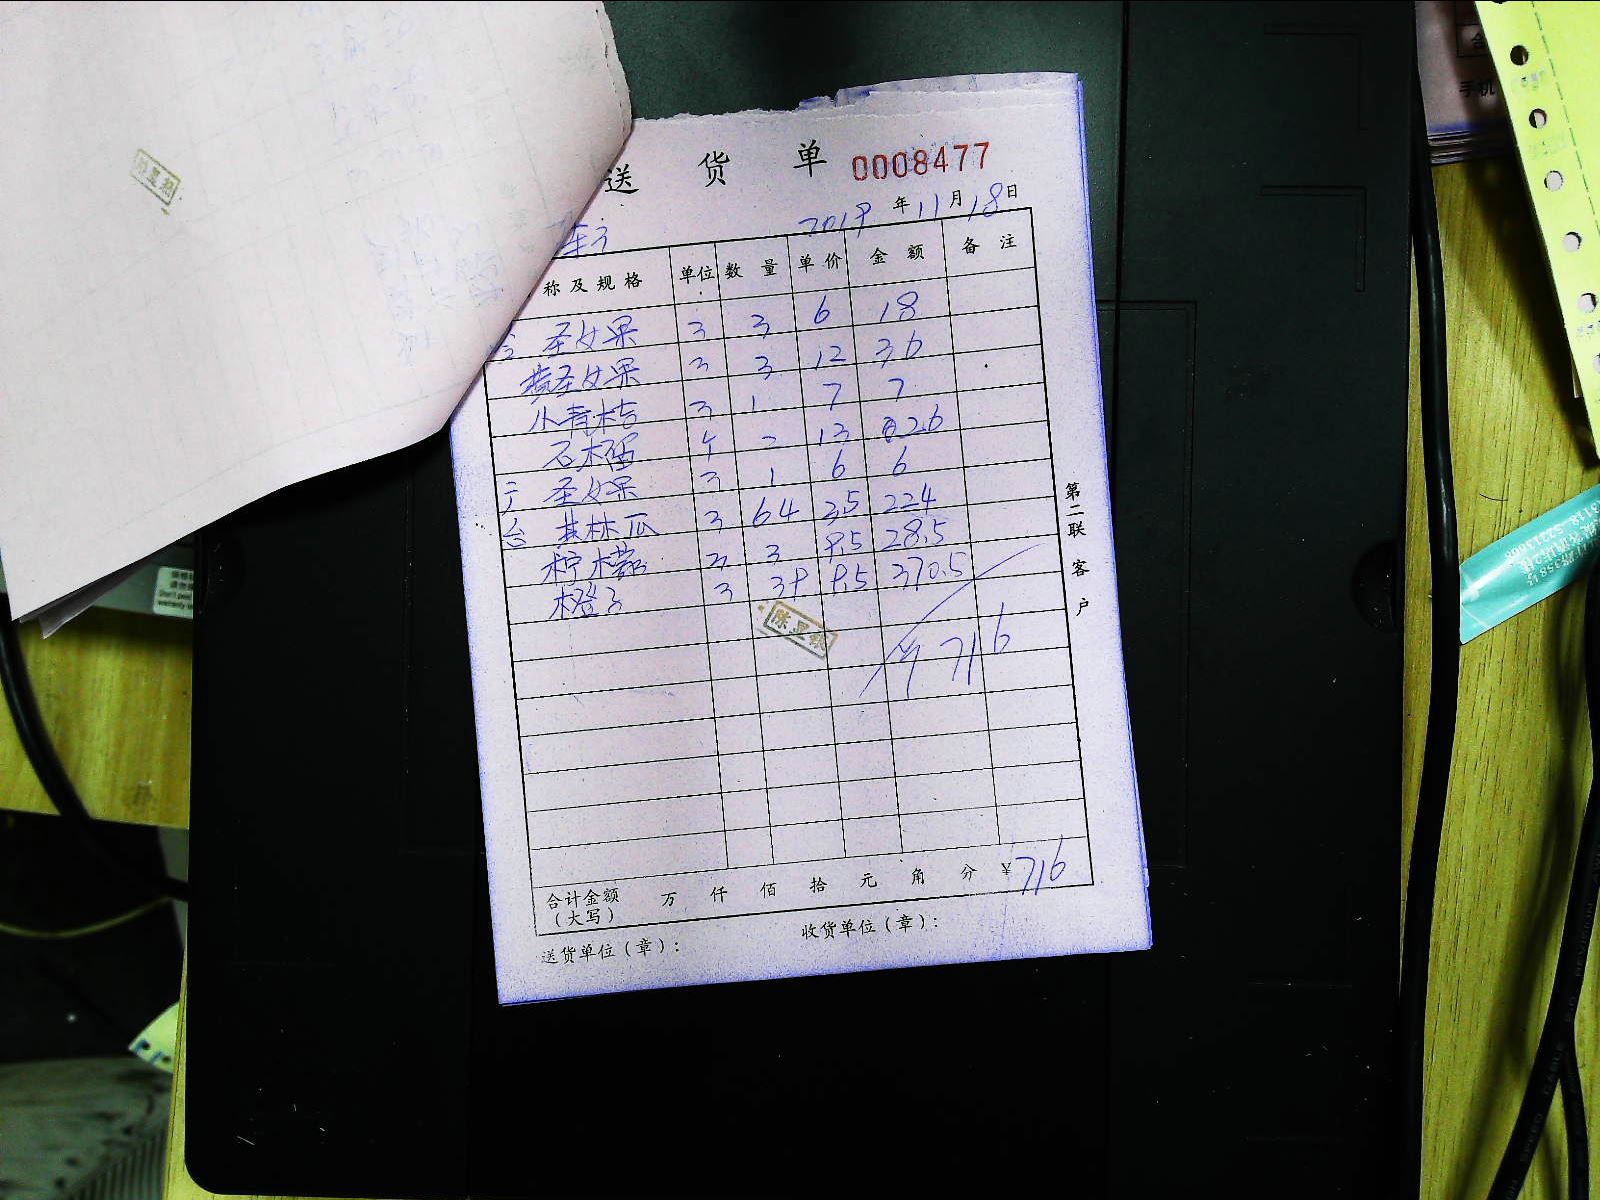 送 货 单 0008477
2019 年 11 月 18 日
称及规格 单位 数 量 单价 金 额 备 注
圣女果 3 3 6 18
黄圣女果 3 3 12 36
小青桔 3 1 7 7
石榴 个 2 13 26
二厅 圣女果 3 1 6 6
台 其林瓜 3 64 3.5 224
柠檬 3 3 9.5 28.5
橙子 3 39 9.5 370.5
陈显
¥716
合计金额 万 仟 佰 拾 元 角 分 ¥716
（大写）
送货单位（章）： 收货单位（章）：
第二联 客户
手机